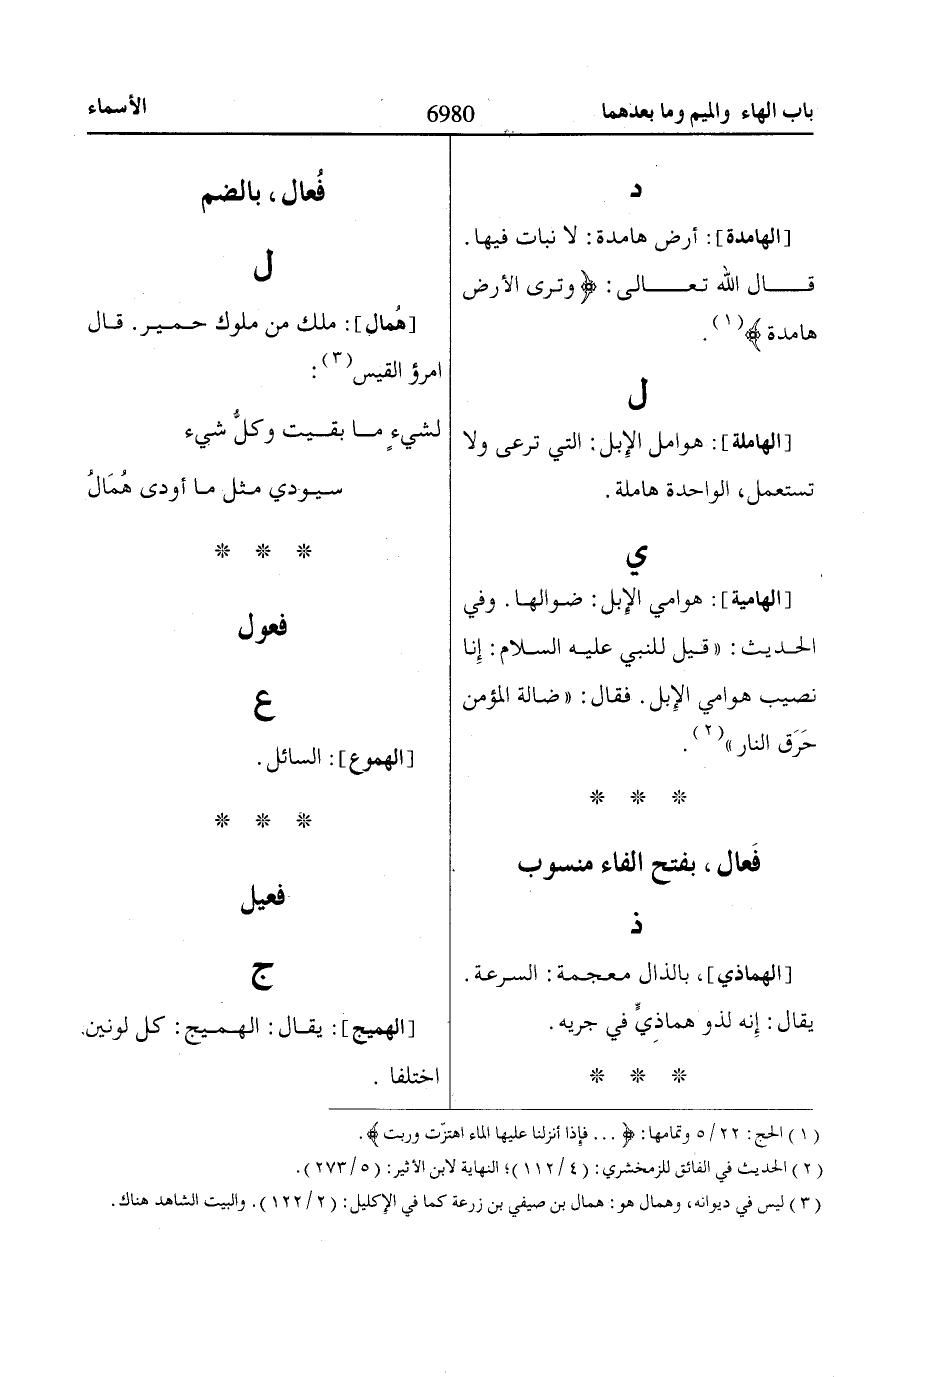 باب الهاء والميم وما بعدهما
6980
الأسماء
د
[الهامدة]: أرض هامدة: لا نبات فيها.
قـــال الله تعـــالى: ﴿وترى الأرض
هامدة﴾(١).
ل
[الهاملة]: هوامل الإبل: التي ترعى ولا
تستعمل، الواحدة هاملة.
ي
[الهامية]: هوامي الإبل: ضوالها. وفي
الحديث: «قيل للنبي عليه السلام: إنا
نصيب هوامي الإبل. فقال: «ضالة المؤمن
حَرَق النار»(٢).
* * *
فَعال، بفتح الفاء منسوب
ذ
[الهماذي]، بالذال معجمة: السرعة.
يقال: إنه لذو هماذيٍّ في جريه.
* * *
فُعال، بالضم
ل
[هُمال]: ملك من ملوك حمير. قال
امرؤ القيس(٣):
لشيءٍ ما بقيت وكلُّ شيء
سيودي مثل ما أودى هُمَالُ
* * *
فعول
ع
[الهموع]: السائل.
* * *
فعيل
ج
[الهميج]: يقال: الهميج: كل لونين
اختلفا.
(١) الحج: ٢٢/ ٥ وتمامها: ﴿... فإذا أنزلنا عليها الماء اهتزّت وربت﴾.
(٢) الحديث في الفائق للزمخشري: (٤/ ١١٢)؛ النهاية لابن الأثير: (٥/ ٢٧٣).
(٣) ليس في ديوانه، وهمال هو: همال بن صيفي بن زرعة كما في الإكليل: (٢/ ١٢٢). والبيت الشاهد هناك.